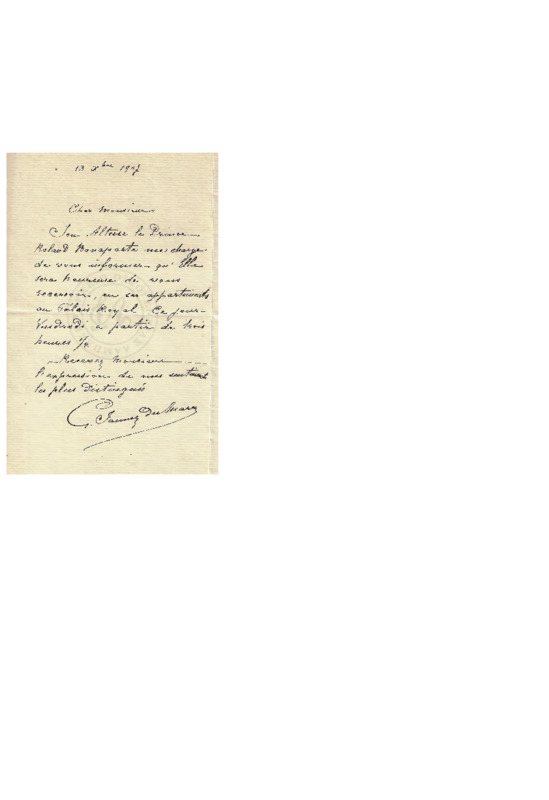 13 Xbre 19
Cher Monsieur
Son Altesse le Prince
Roland Bonaparte me charge
de vous informer qu'Elle
sera heureuse de vous
recevoir, en ses appartements
au Palais Royal ce jour
Vendredi a partir de trois
heures ½.
Recevez Monsieur
l'expression de mes sentiments
les plus distingués